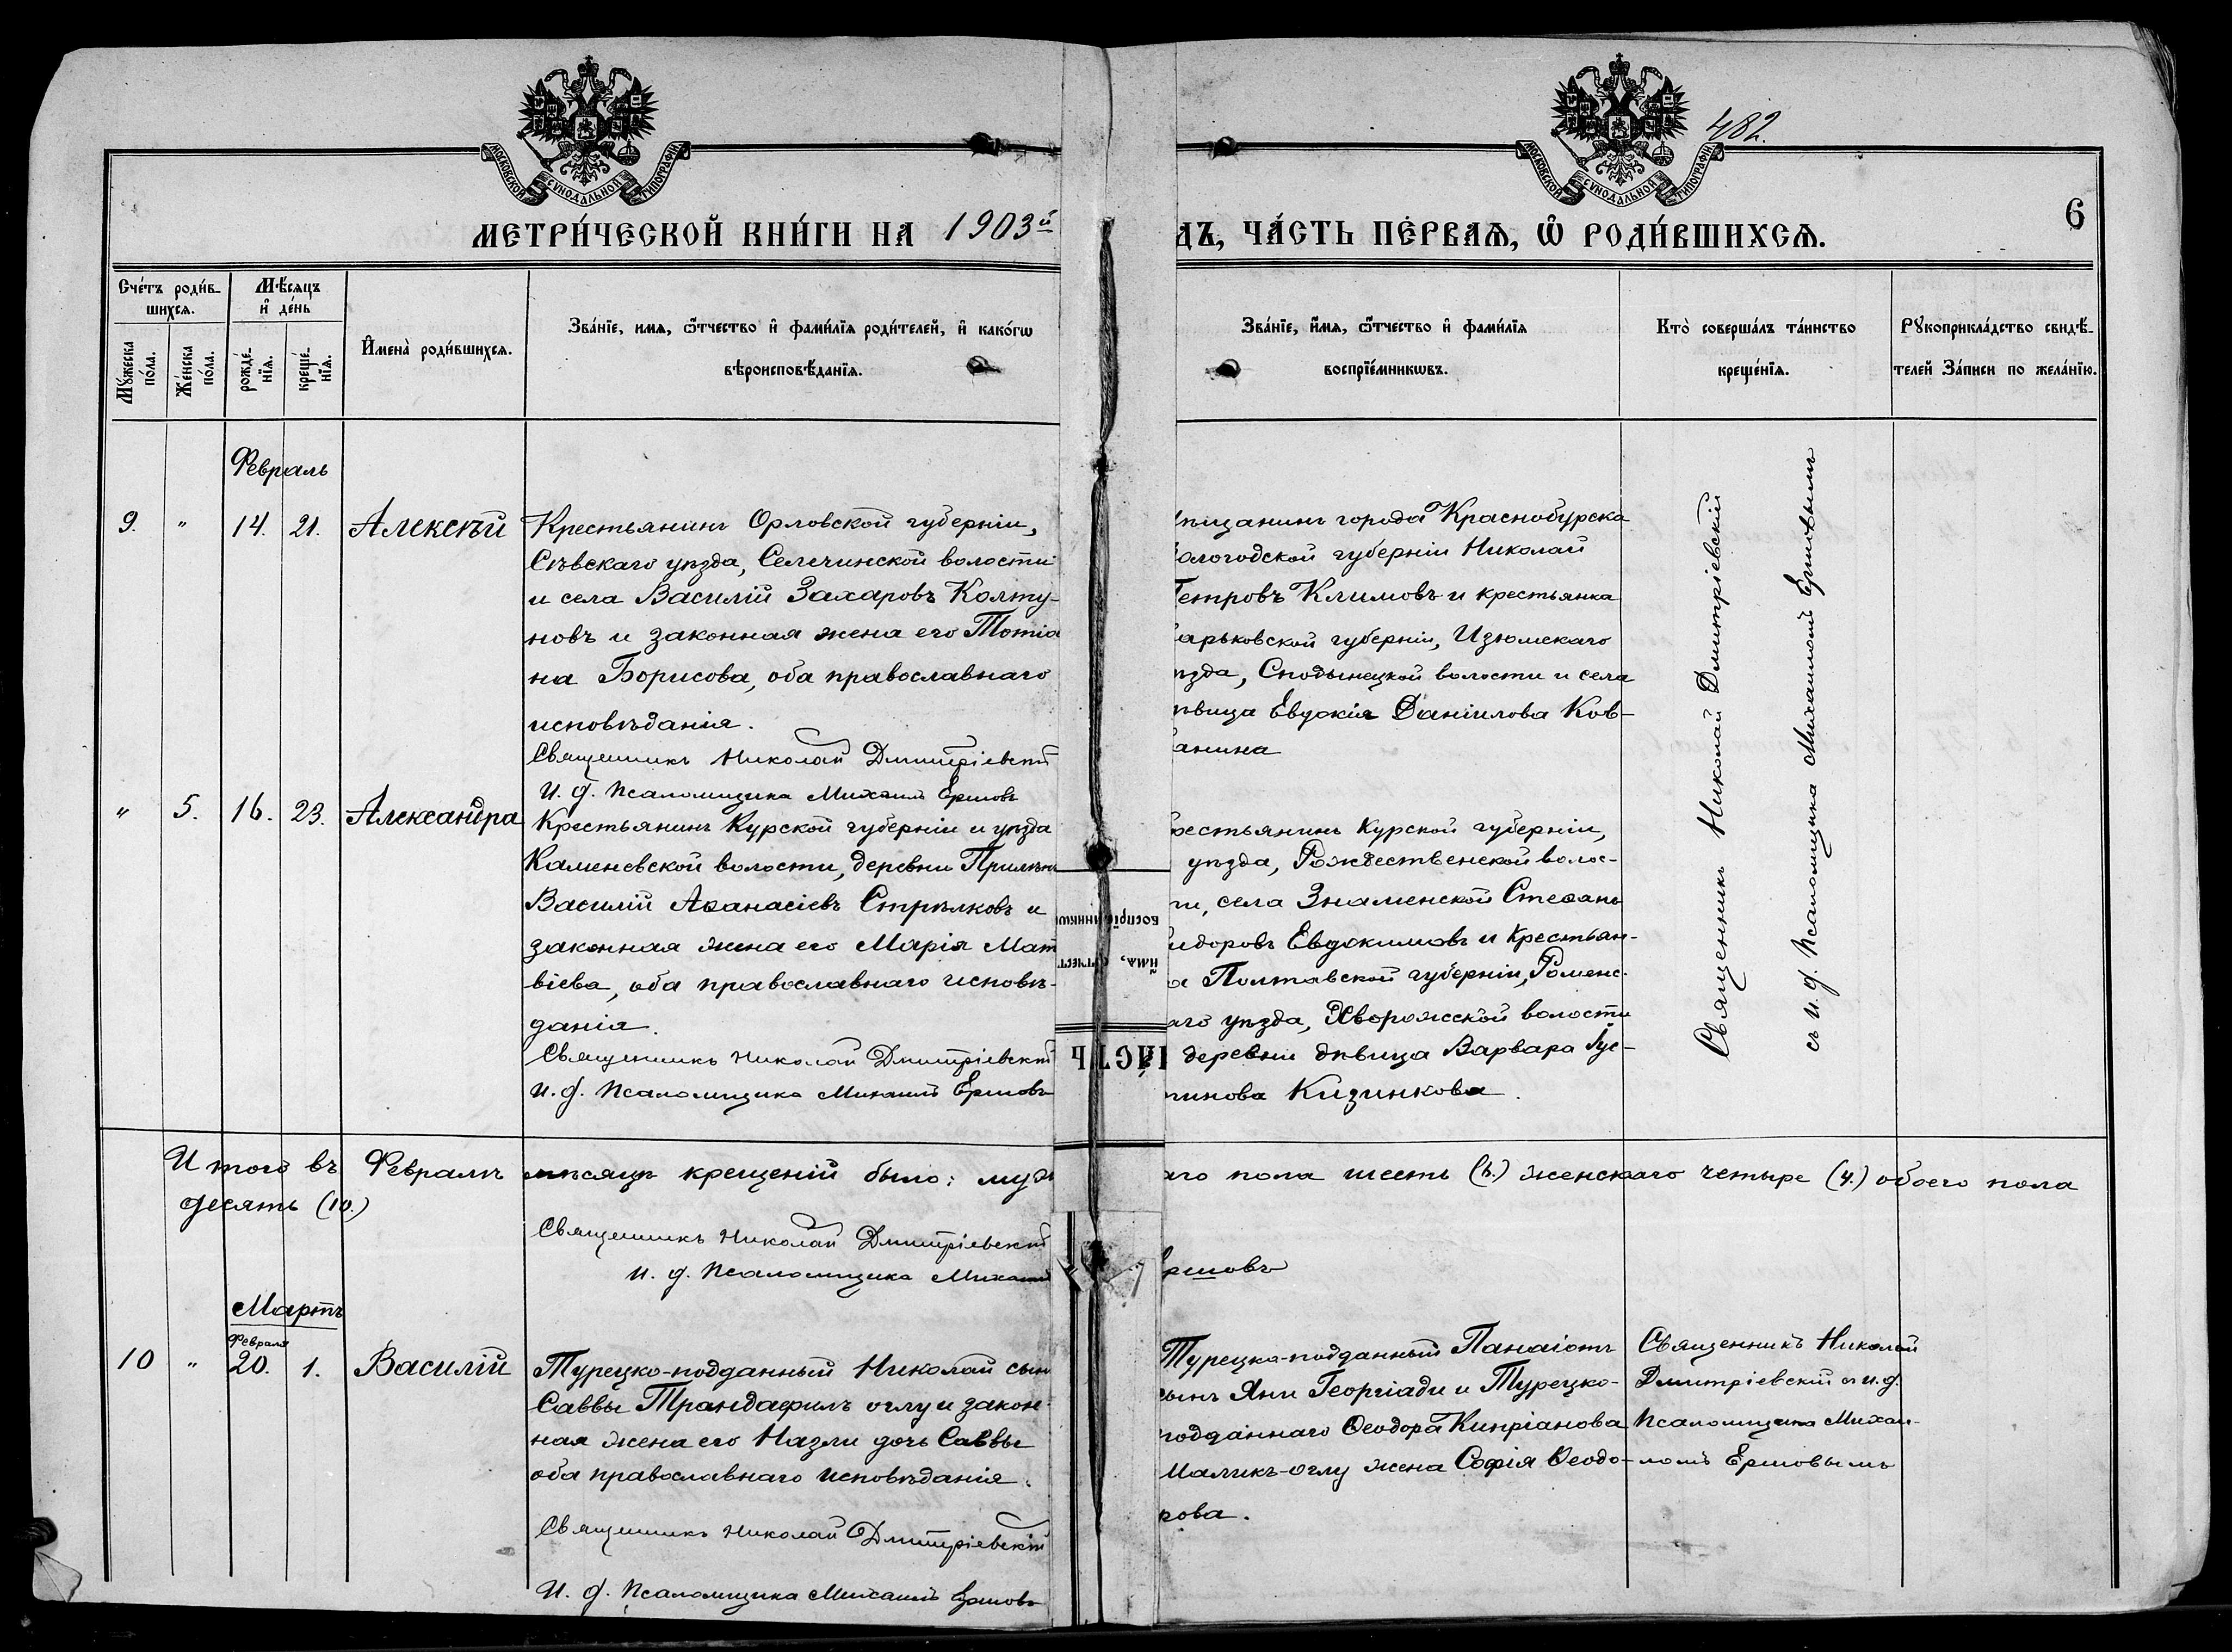 МОСКОВСКОЙ СУНОДАЛЬНОЙ ТИПОГРАФІИ
МОСКОВСКОЙ СУНОДАЛЬНОЙ ТИПОГРАФІИ
482.
6
МЕТРИ́ЧЕСКОЙ КНИ́ГИ НА 1903й
ДЪ, ЧА́СТЬ ПЕ́РВАѦ, Ѡ РОДИ́ВШИХСѦ.
Сче́тъ роди́в-
шихсѧ.
Мꙋжеска по́ла.
Же́нска по́ла.
Мѣ́сѧцъ и҆ де́нь
рожде́-нїѧ.
креще́-нїѧ.
И҆мена̀ роди́вшихсѧ.
Зва́нїе, имѧ, ѻ҆́тчество и҆ фами́лїѧ роди́телей, и҆ како́гѡ
вѣроисповѣ́данїѧ.
Зва́нїе, и҆́мѧ, ѻ҆́тчество и҆ фами́лїѧ
воспрїе́мникѡвъ.
Кто̀ соверша́лъ та́инство
креще́нїѧ.
Рꙋкоприкла́дство свидѣ́-
телей За́писи по жела́нїю.
Февраль
9. " 14. 21. Алексѣй
Крестьянинъ Орловской губерніи,
Сѣвскаго уѣзда, Селечинской волости
и села Василій Захаровъ Колту-
новъ и законная жена его Татіа
на Борисова, оба православнаго
исповѣданія.
Священникъ Николай Дмитріевскій
И. д. Псаломщика Михаилъ Ершовъ
ѣщанинъ города Краснобурска
ологодской губерніи Николай
Петровъ Климовъ и крестьянка
арьковской губерніи, Изюмскаго
ѣзда, Сподынецкой волости и села
ѣвица Евдокія Даніилова Ков-
анина
Священникъ Николай Дмитріевскій
съ и. д. Псаломщика Михаиломъ Ершовымъ
" 5. 16. 23. Александра
Крестьянинъ Курской губерніи и уѣзда
Каменевской волости, деревни
Василій Аѳанасіевъ Стрѣлковъ и
законная жена его Марія Мат
вієва, оба православнаго исповѣ-
данія.
Священникъ Николай Дмитріевскій
И. д. Псаломщика Михаилъ Ершовъ
рестьянинъ Курской губерніи,
уѣзда, Рождественской волос-
ти, села Знаменской Стефанъ
идоровъ Евдокимовъ и крестьян-
а Полтавской губерніи, Роменс-
аго уѣзда, Хворожской волости
деревни дѣвица Варвара Гус-
тинова Кизинкова.
воспрїе́мникѡв
и҆́мѧ, ѻ҆́тчест
ЧА́СТЬ
Итого въ Февралѣ мѣсяцѣ крещеній было: муж
аго пола шесть (6.) женскаго четыре (4.) обоего пола
десять (10.)
Священникъ Николай Дмитріевскій
И. д. Псаломщика Михаилъ
Ершовъ
Мартъ
Февраля
10 " 20. 1. Василій
Турецко-подданный Николай сын
Саввы Трандафилъ оглу и закон-
ная жена его Назли дочь Саввы
оба православнаго исповѣданія.
Священникъ Николай Дмитріевскій
И. д. Псаломщика Михаилъ Ершовъ
Турецко-подданный Панаіотъ
сынъ Яни Георгіади и Турецко-
подданнаго Ѳеодора Кипріанова
Маликъ-оглу жена Софія Ѳеодо-
рова.
Священникъ Николай
Дмитріевскій съ и. д.
Псаломщика Михаи-
ломъ Ершовымъ